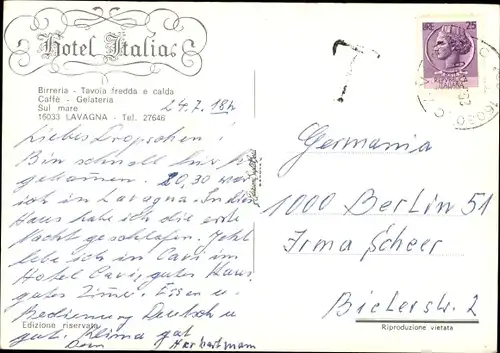 Hotel Italia
Birreria - Tavola fredda e calda
Caffè - Gelateria
Sul mare
16033 LAVAGNA - Tel. 27646
24.7. 18h
Liebes Tropschen!
Bin schnell hier
gekommen. 20,30 war
ich in Lavagna. In dem
Haus habe ich die erste
Nacht geschlafen. Jetzt
lebe ich in Cavi im
Hotel Cavi, gutes Haus,
gutes Zimm. Essen u.
Bedienung Deutsch u
gut. Klima gut
Edizione riservata
T
LIRE 25
Germania
1000 Berlin 51
Irma Scheer
Bielerstr. 2
Riproduzione vietata